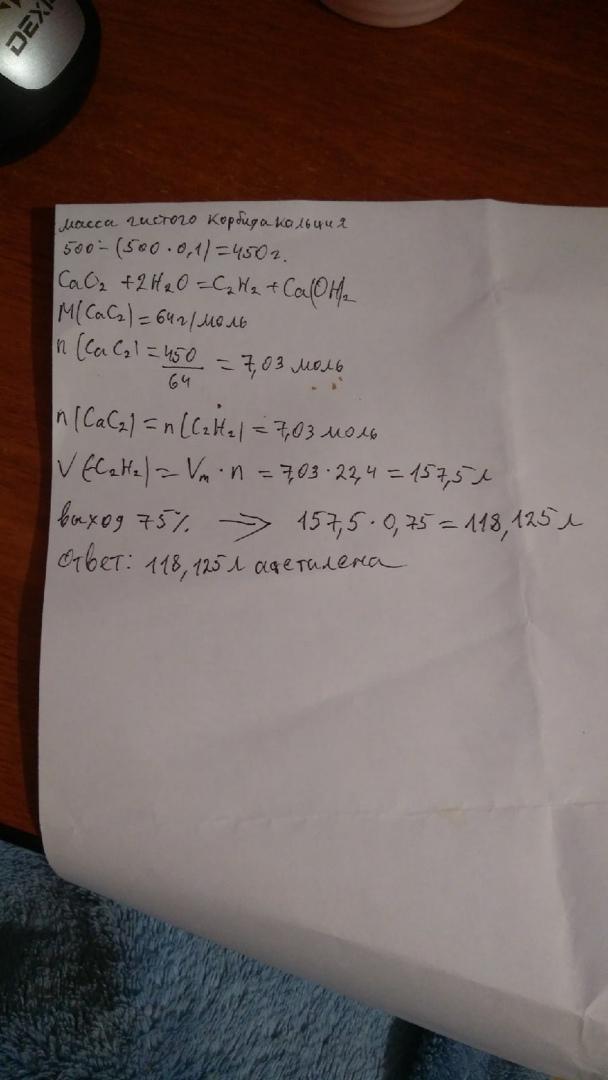 DEXP
масса чистого корбида кальция
500-(500·0,1)=450г.
CaC₂ +2H₂O =C₂H₂+Ca(OH)₂
M(CaC₂)=64г/моль
n(CaC₂)=450/64 = 7,03 моль
n(CaC₂)=n(C₂H₂)=7,03 моль
V(C₂H₂)=Vm·n =7,03·22,4=157,5л
выход 75% → 157,5·0,75=118,125л
Ответ: 118,125л ацетилена